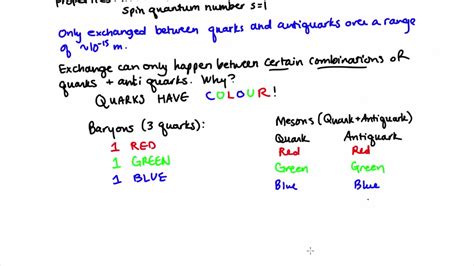 spin quantum number s=1
Only exchanged between quarks and antiquarks over a range
of ~10⁻¹⁵ m.
Exchange can only happen between certain combinations of
quarks + anti quarks. Why?
QUARKS HAVE COLOUR!
Baryons (3 quarks):
1 RED
1 GREEN
1 BLUE
Mesons (Quark+Antiquark)
Quark Antiquark
Red Red
Green Green
Blue Blue